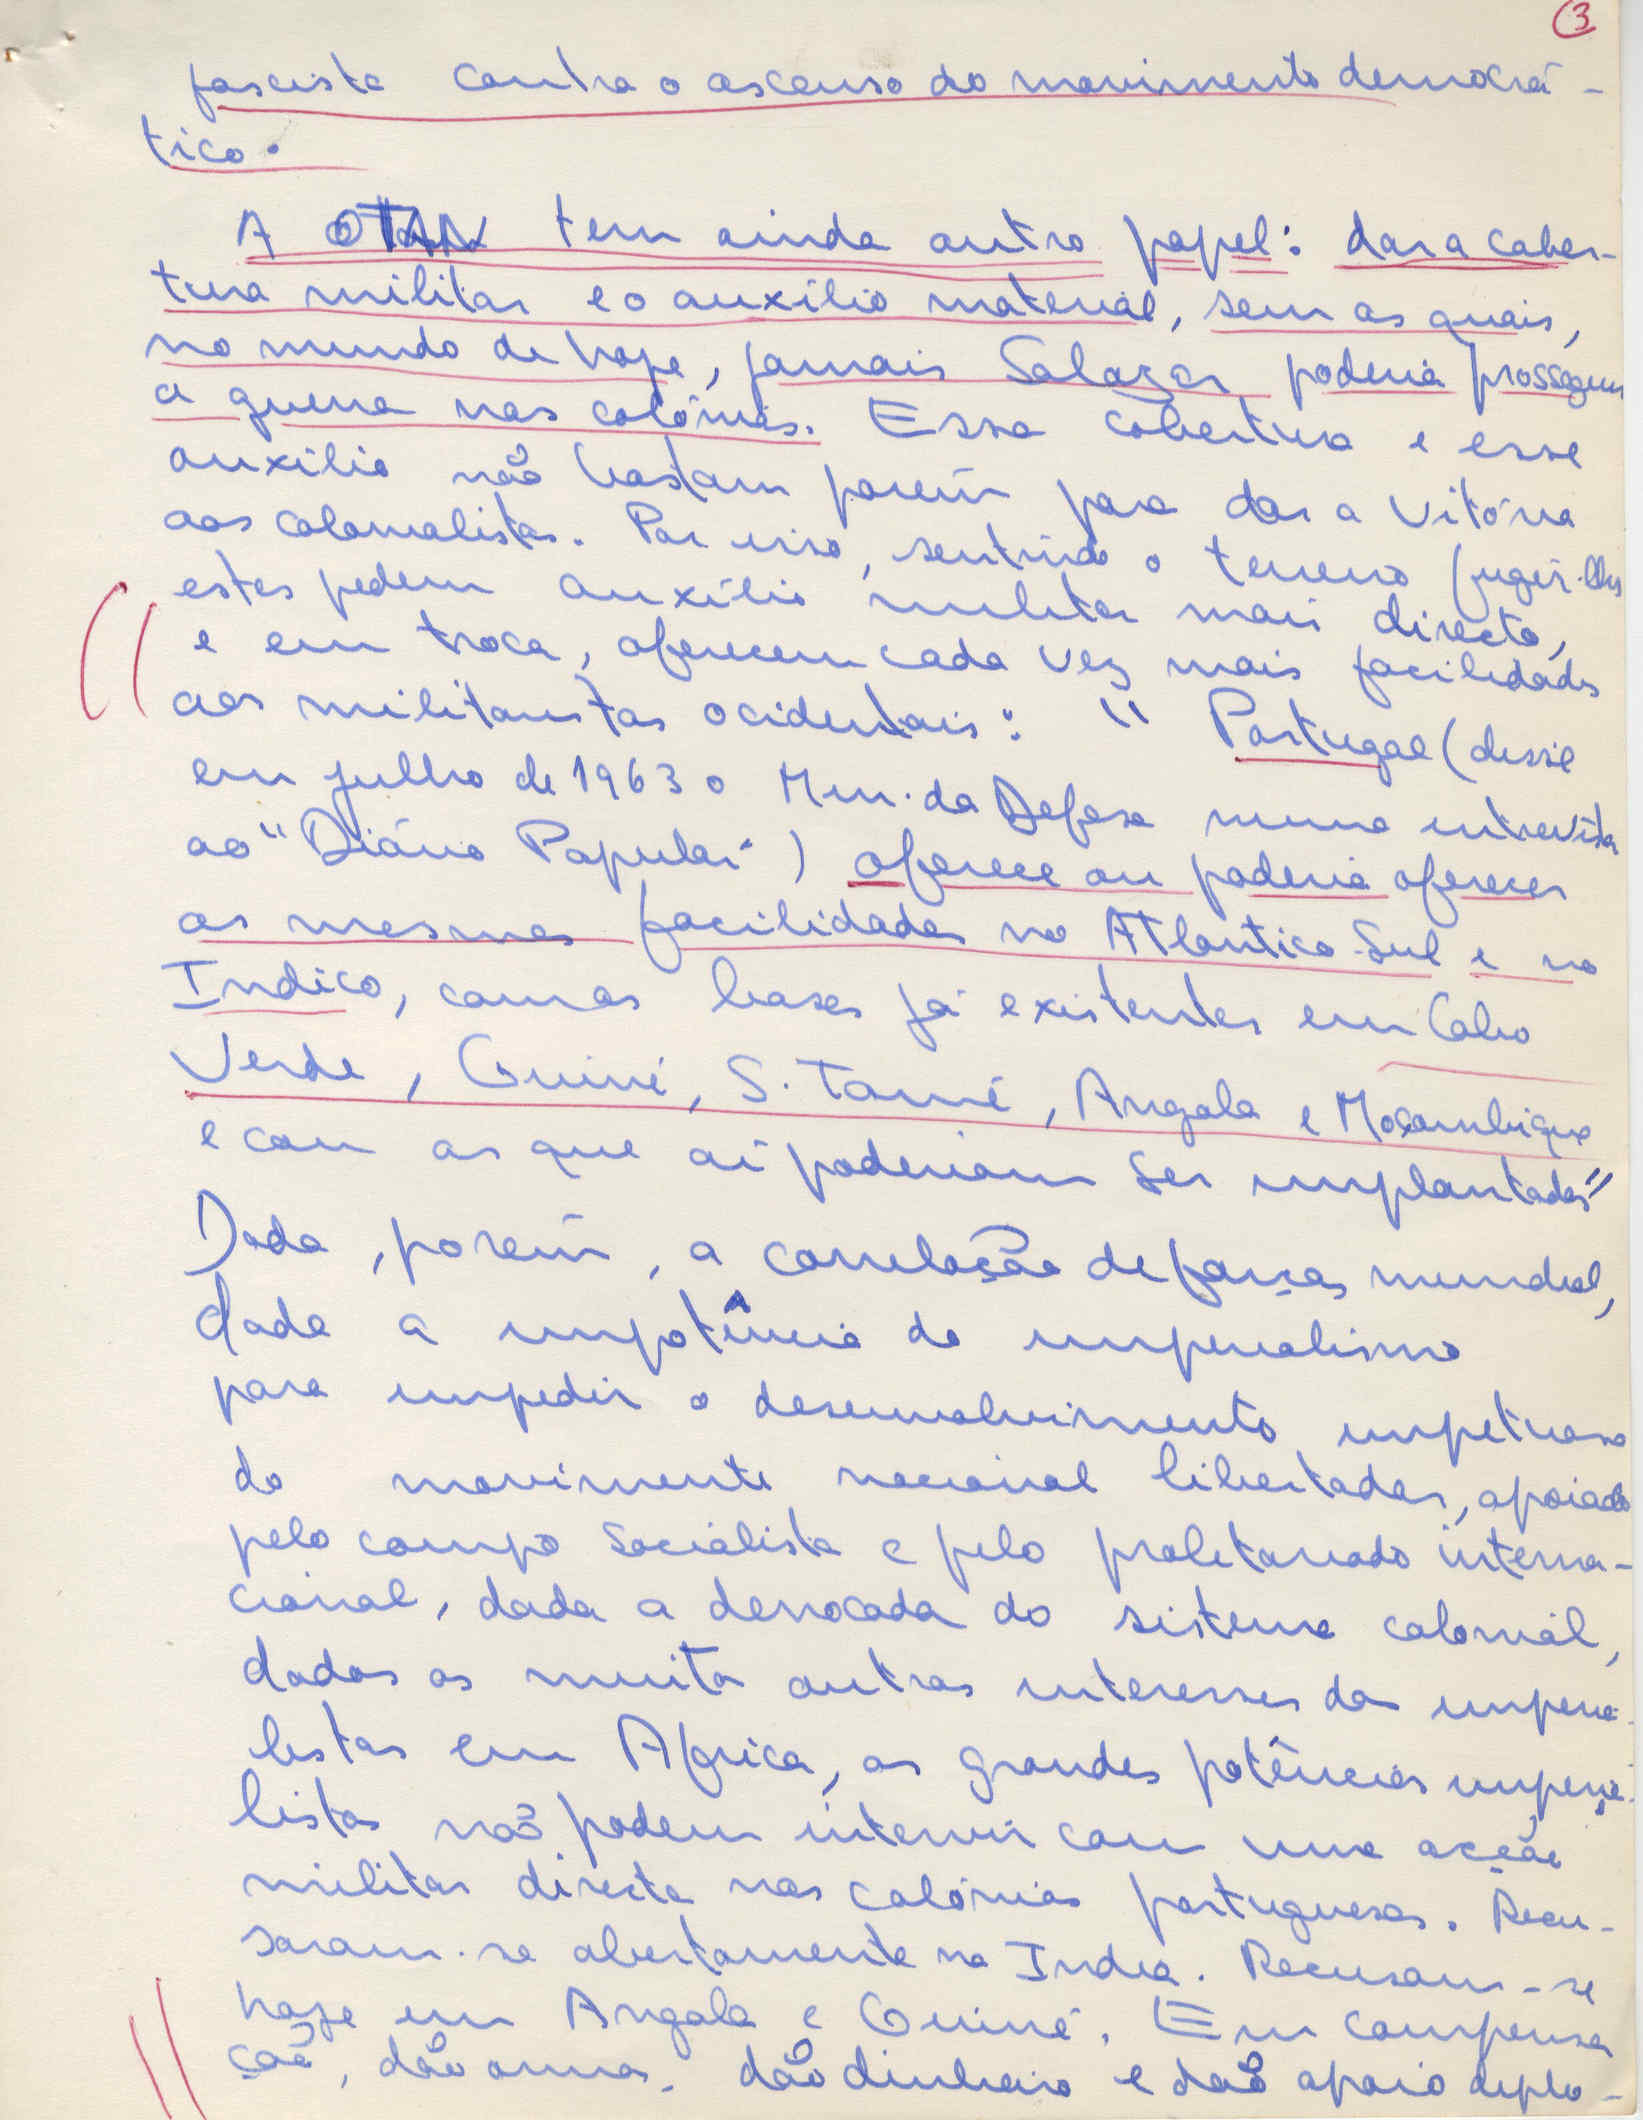 3
fascista contra o ascenso do movimento democrá-
tico.
A OTAN tem ainda outro papel: dar a cober-
tura militar e o auxílio material, sem as quais,
no mundo de hoje, jamais Salazar poderia prosseguir
a guerra nas colónias. Essa cobertura e esse
auxílio não bastam porém para dar a vitória
aos colonialistas. Por isso, sentindo o terreno fugir-lhes
estes pedem auxílio militar mais directo,
e em troca, oferecem cada vez mais facilidades
aos militaristas ocidentais: "Portugal (disse
em julho de 1963 o Min. da Defesa numa entrevista
ao "Diário Popular") oferece ou poderia oferecer
as mesmas facilidades no Atlantico-Sul e no
Indico, com as bases já existentes em Cabo
Verde, Guiné, S. Tomé, Angola e Moçambique
e com as que aí poderiam ser implantadas"
Dada, porém, a correlação de forças mundial,
dada a impotência do imperialismo
para impedir o desenvolvimento impetuoso
do movimento nacional libertador, apoiado
pelo campo socialista e pelo proletariado interna-
cional, dada a derrocada do sistema colonial,
dados os muitos outros interesses dos imperia-
listas em Africa, as grandes potências imperia-
listas não podem intervir com uma acção
militar directa nas colónias portuguesas. Recu-
saram-se abertamente na India. Recusam-se
hoje em Angola e Guiné. Em compensa
ção, dão armas, dão dinheiro e dão apoio diplo-